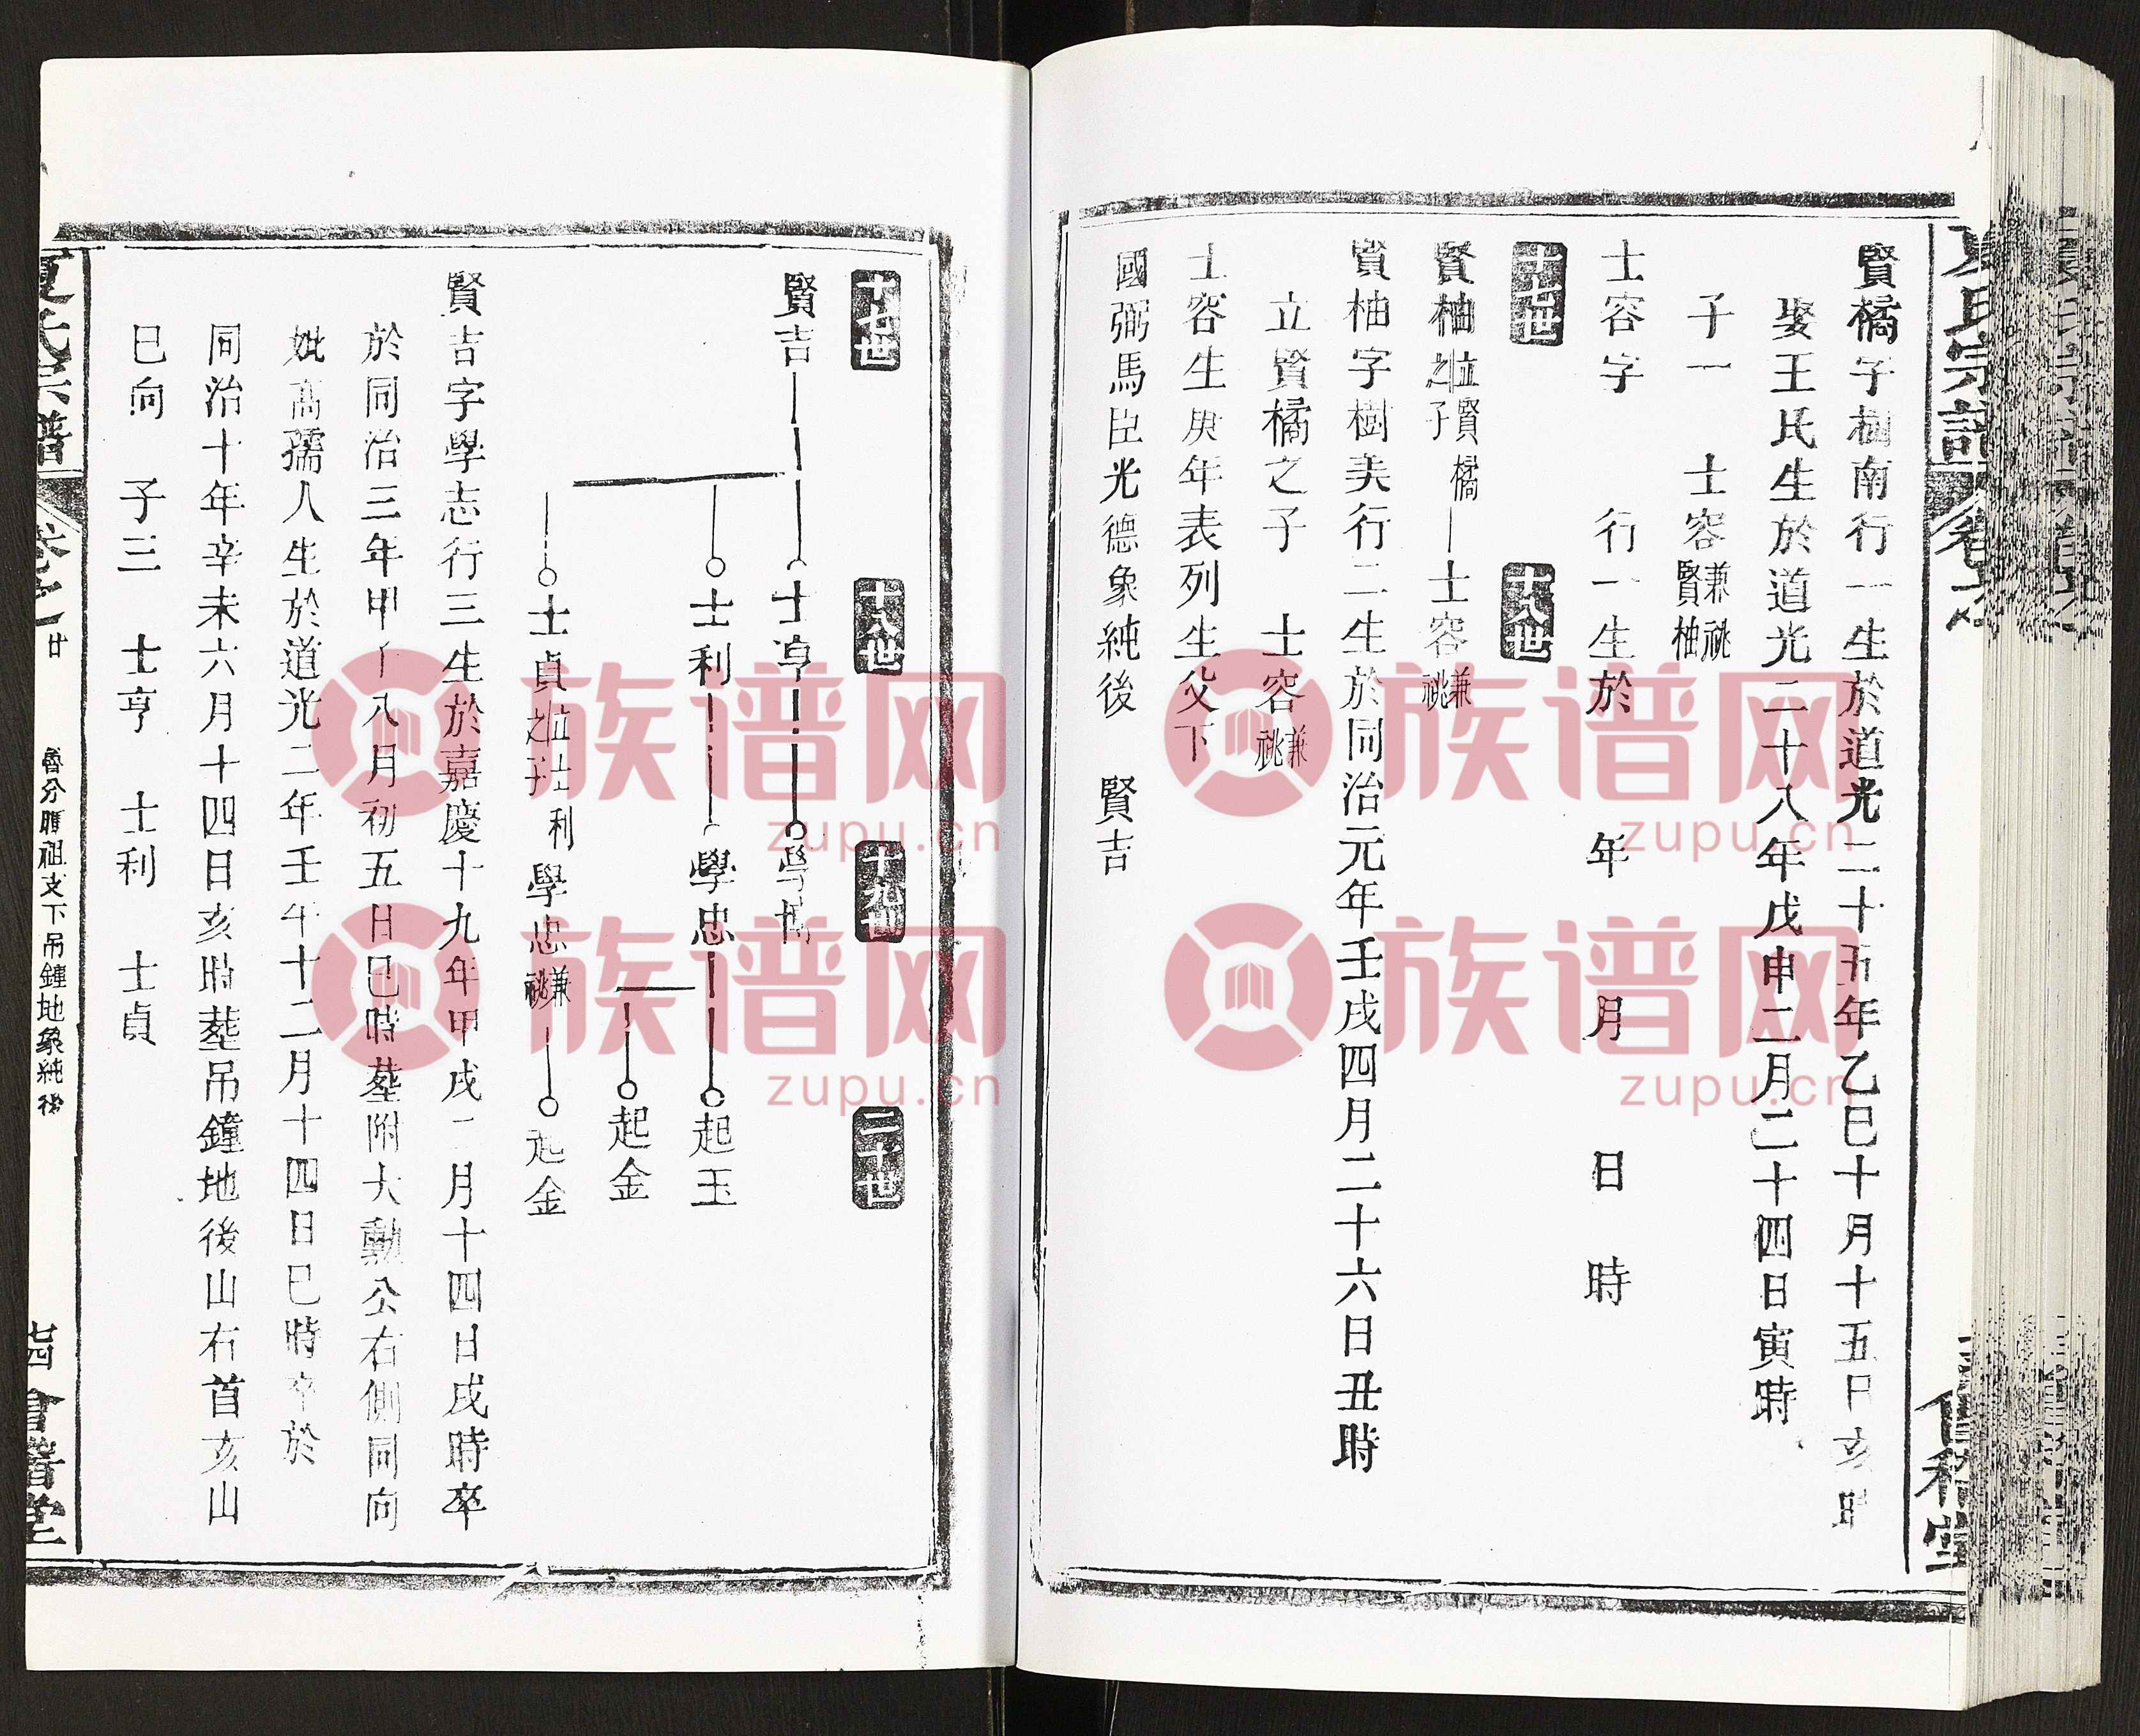 賢橘字樹南行一生於道光二十五年乙巳十月十五日亥時
娶王氏生於道光二十八年戊申二月二十四日寅時
子一 士容兼祧賢柚
士容字 行一生於 年 月 日 時
十七世 十八世
賢柚立賢橘之子 士容兼祧
賢柚字樹美行二生於同治元年壬戌四月二十六日丑時
立賢橘之子 士容兼祧
士容生庚年表列生父下
國弼馬臣光德象純後 賢吉
十七世 十八世 十九世 二十世
賢吉 士亨
士利 學忠 起玉
起金
士貞立士利之子 學忠兼祧 起金
賢吉字學志行三生於嘉慶十九年甲戌二月十四日戌時卒
於同治三年甲子八月初五日巳時塟附大勳公右側同向
妣高孺人生於道光二年壬午十二月十四日巳時卒於
同治十年辛未六月十四日亥時塟吊鐘地後山右首亥山
巳向 子三 士亨 士利 士貞
夏氏宗譜
卷之 廿
祖支下吊鐘地象純後
七四
會稽堂
族谱网
zupu.cn
族谱网
zupu.cn
族谱网
zupu.cn
族谱网
zupu.cn